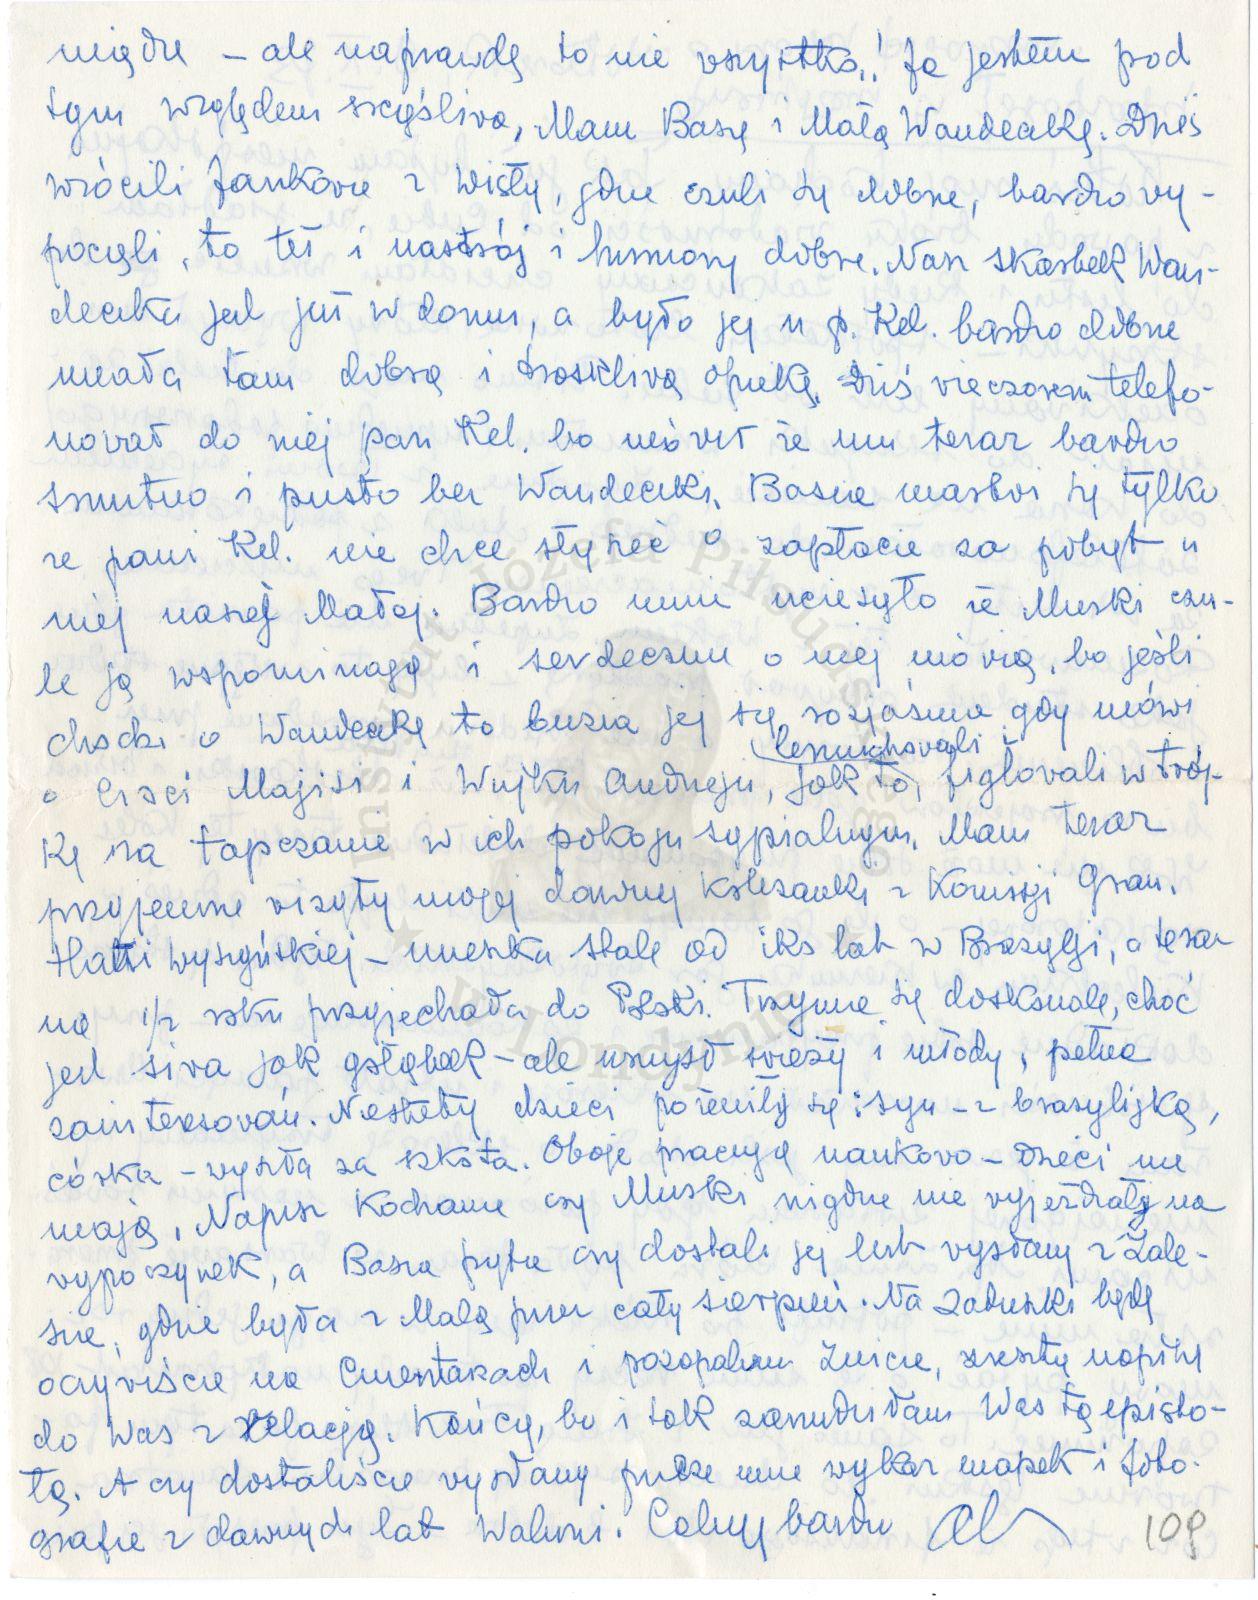 niądze – ale naprawdę to nie wszystko! Ja jestem pod
tym względem szczęśliwa, Mam Basę i Małą Wandeczkę. Dziś
wrócili Jankowie z Wisły, gdzie czuli się dobrze, bardzo wy-
poczęli, to też i nastrój i humory dobre. Nasz skarbek Wan-
deczka jest już w domu, a było jej u p. Kel. bardzo dobrze
miała tam dobrą i troskliwą opiekę. Dziś wieczorem telefo-
nował do niej pan Kel. bo mówił że mu teraz bardzo
smutno i pusto bez Wandeczki. Basia martwi się tylko
że pani Kel. nie chce słyszeć o zapłacie za pobyt u
niej naszej Małej. Bardzo mnie ucieszyło że Muski czu-
le ją wspominają i serdecznie o niej mówią, bo jeśli
chodzi o Wandeczkę to buzia jej się rozjaśnia gdy mówi
o Cioci Majisi i Wujku Andrzeju, jak to leniuchowali i figlowali w trój-
kę na tapczanie w ich pokoju sypialnym. Mam teraz
przyjemne wizyty mojej dawnej koleżanki z Komisji Gran.
Hali Wyszyńskiej – mieszka stale od iks lat w Brazylji, a teraz
na 1/2 roku przyjechała do Polski. Trzyma się doskonale, choć
jest siwa jak gołąbek – ale umysł świeży i młody, pełna
zainteresowań. Niestety dzieci pożeniły się: syn – z brazylijką,
córka – wyszła za szkota. Oboje pracują naukowo – dzieci nie
mają. Napisz Kochanie czy Muski nigdzie nie wyjeżdżały na
wypoczynek, a Basia pyta czy dostali jej list wysłany z Zale-
sia, gdzie była z Małą przez cały sierpień. Na Zaduszki będę
oczywiście na Cmentarzach i pozapalam znicze, zresztą napiszę
do Was z relacją. Kończę, bo i tak zanudziłam Was tą episto-
łą. A czy dostaliście wysłany przeze mnie wykaz mapek i foto-
grafie z dawnych lat Waluni. Całuję bardzo
109
Instytut Józefa Piłsudskiego
w Londynie